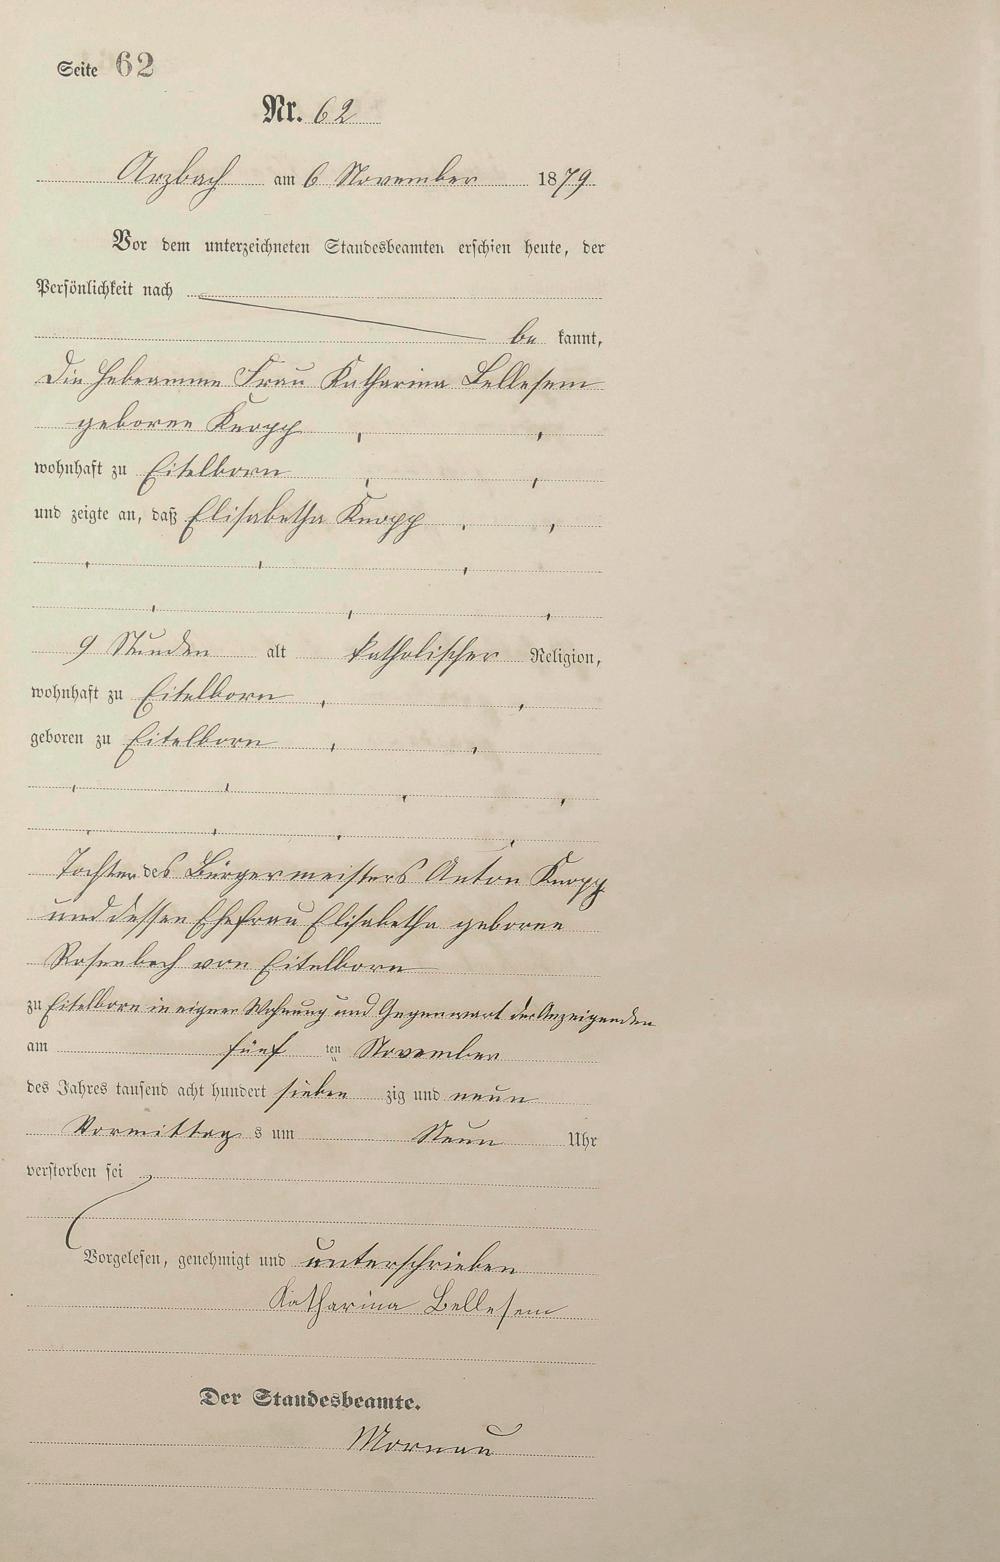 Seite 62
Nr. 62
Arzbach am 6 November 1879
Vor dem unterzeichneten Standesbeamten erschien heute, der
Persönlichkeit nach
be kannt,
die Hebeamme Frau Katharina Bellesem
geborne Knopp
wohnhaft zu Eitelborn
und zeigte an, daß Elisabetha Knopp
9 Stunden alt katholischer Religion,
wohnhaft zu Eitelborn
geboren zu Eitelborn
Tochter des Bürgermeisters Anton Knopp
und dessen Ehefrau Elisabetha geborne
Rosenbach von Eitelborn
zu Eitelborn in eigner Wohnung und Gegenwart der Anzeigenden
am fünf ten November
des Jahres tausend acht hundert sieben zig und neun
Vormittag s um Neun Uhr
verstorben sei
Vorgelesen, genehmigt und unterschrieben
Katharina Bellesem
Der Standesbeamte.
Mornau